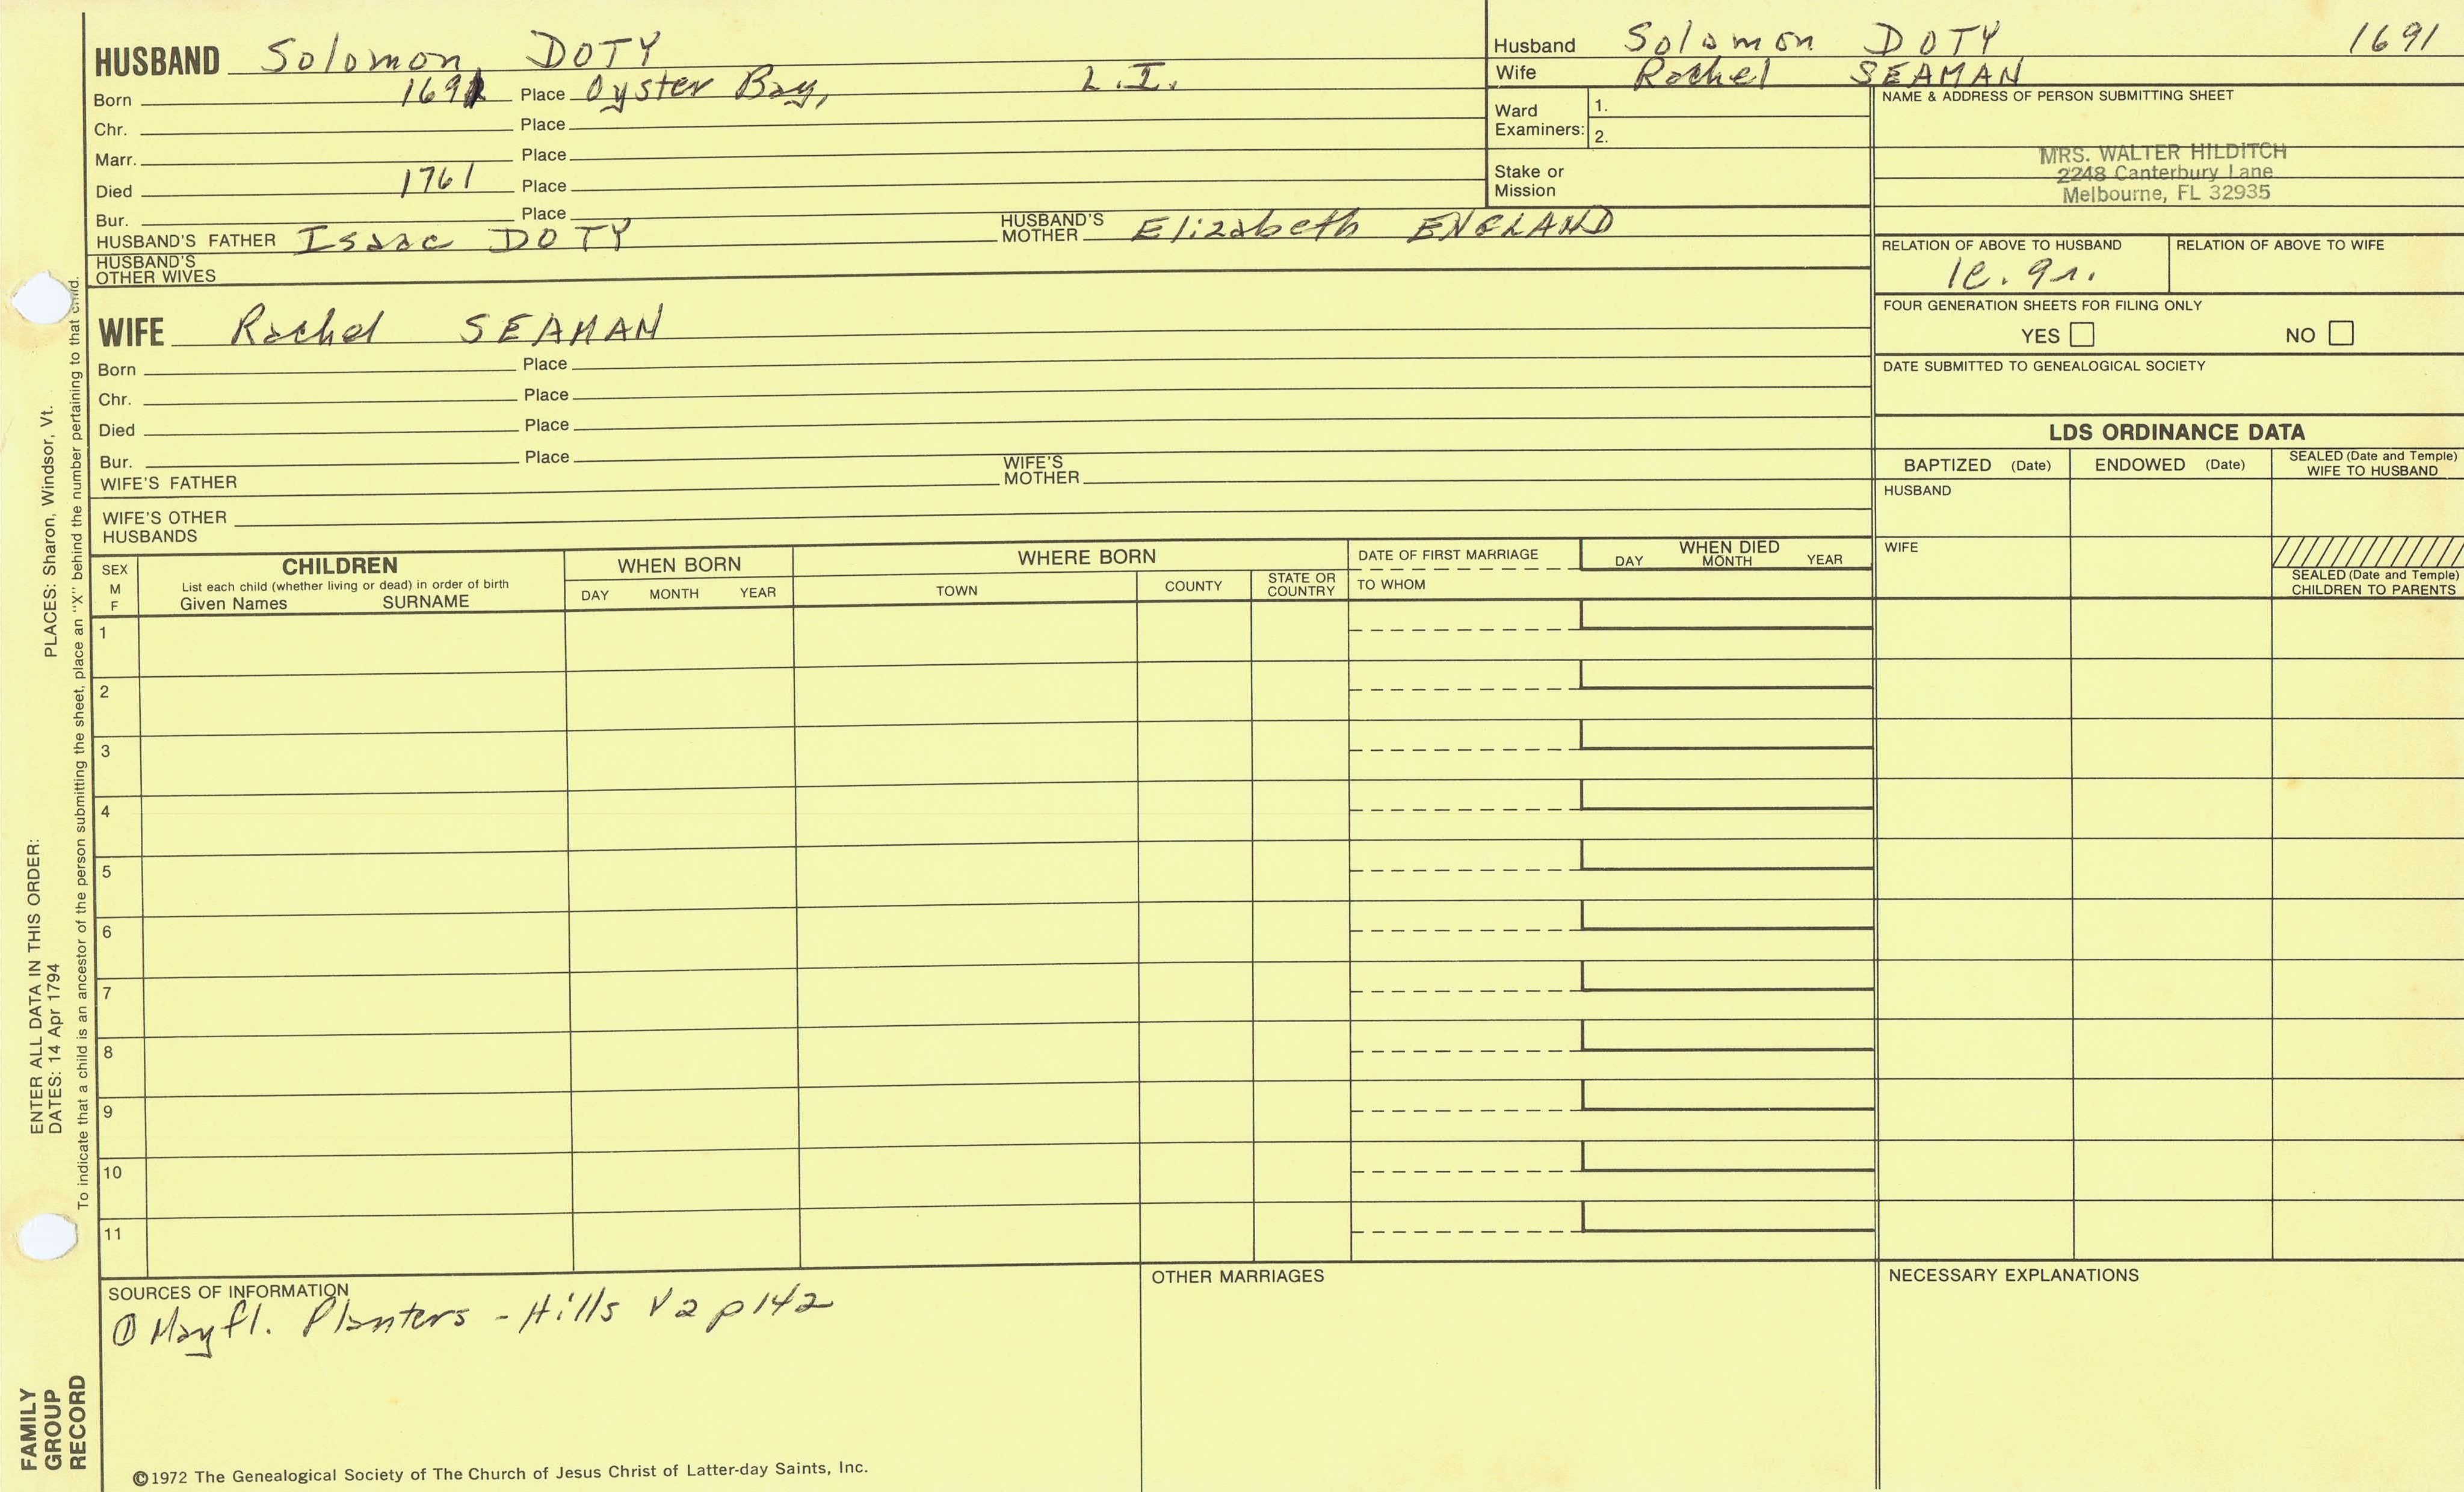 HUSBAND Solomon DOTY
Born 1691 Place Oyster Bay, L.I.
Chr. Place
Marr. Place
Died 1761 Place
Bur. Place
HUSBAND'S FATHER Isaac DOTY HUSBAND'S MOTHER Elizabeth ENGLAND
HUSBAND'S OTHER WIVES
WIFE Rachel SEAMAN
Born Place
Chr. Place
Died Place
Bur. Place
WIFE'S FATHER WIFE'S MOTHER
WIFE'S OTHER HUSBANDS
Husband Solomon DOTY 1691
Wife Rachel SEAMAN
Ward Examiners: 1.
2.
Stake or Mission
NAME & ADDRESS OF PERSON SUBMITTING SHEET
MRS. WALTER HILDITCH
2248 Canterbury Lane
Melbourne, FL 32935
RELATION OF ABOVE TO HUSBAND RELATION OF ABOVE TO WIFE
FOUR GENERATION SHEETS FOR FILING ONLY
YES NO
DATE SUBMITTED TO GENEALOGICAL SOCIETY
LDS ORDINANCE DATA
BAPTIZED (Date) ENDOWED (Date) SEALED (Date and Temple) WIFE TO HUSBAND
HUSBAND
WIFE
SEALED (Date and Temple) CHILDREN TO PARENTS
SEX M F
CHILDREN
List each child (whether living or dead) in order of birth
Given Names SURNAME
WHEN BORN
DAY MONTH YEAR
WHERE BORN
TOWN COUNTY STATE OR COUNTRY
DATE OF FIRST MARRIAGE
TO WHOM
WHEN DIED
DAY MONTH YEAR
1
2
3
4
5
6
7
8
9
10
11
SOURCES OF INFORMATION
① Mayfl. Planters - Hills V2 p142
OTHER MARRIAGES
NECESSARY EXPLANATIONS
©1972 The Genealogical Society of The Church of Jesus Christ of Latter-day Saints, Inc.
FAMILY GROUP RECORD
ENTER ALL DATA IN THIS ORDER:
DATES: 14 Apr 1794 PLACES: Sharon, Windsor, Vt.
To indicate that a child is an ancestor of the person submitting the sheet, place an "X" behind the number pertaining to that child.